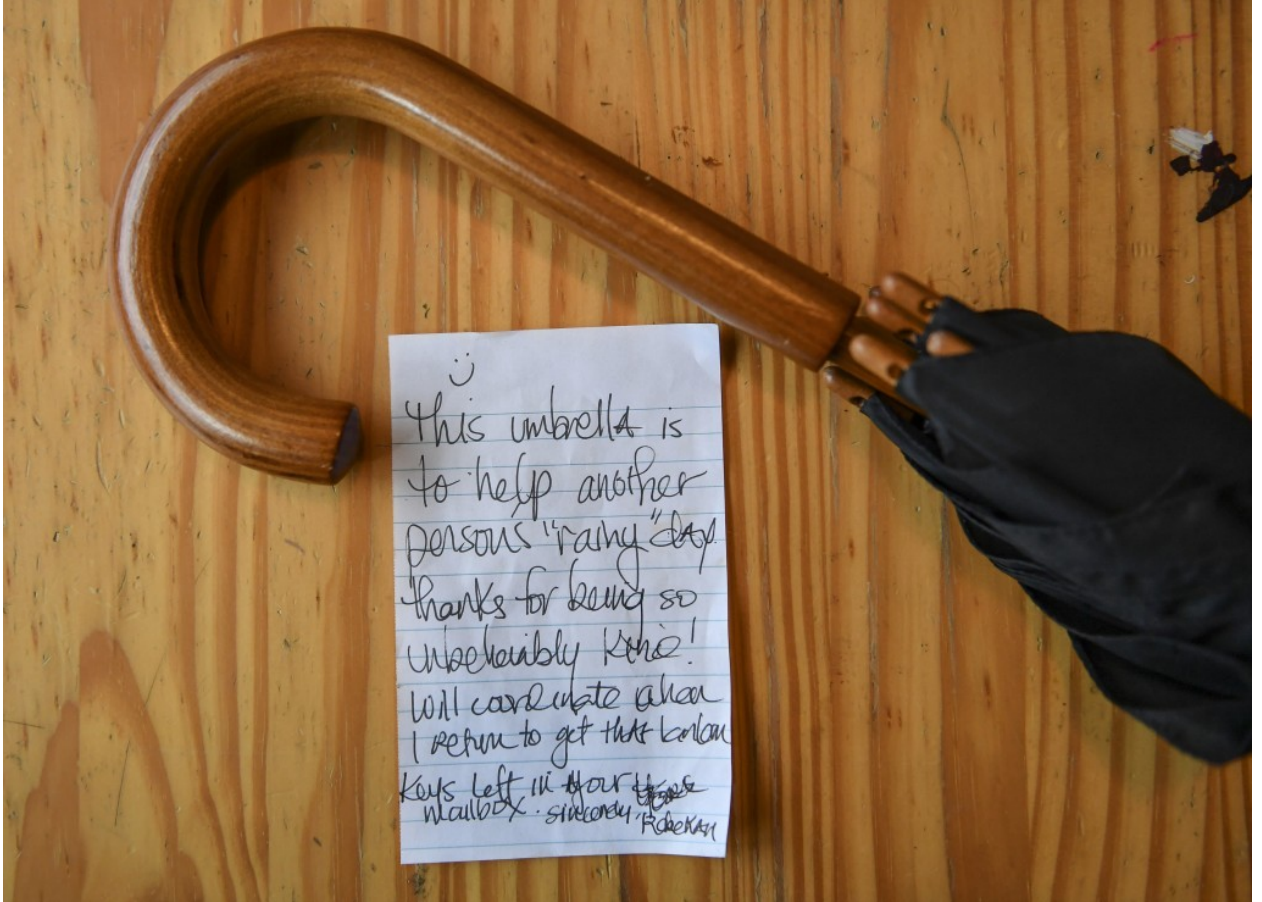 This umbrella is
to help another
persons "rainy" day.
thanks for being so
unbeleivibly kind!
Will coordinate when
I return to get that
Keys left in your
mailbox. sincerely,
Rebekah